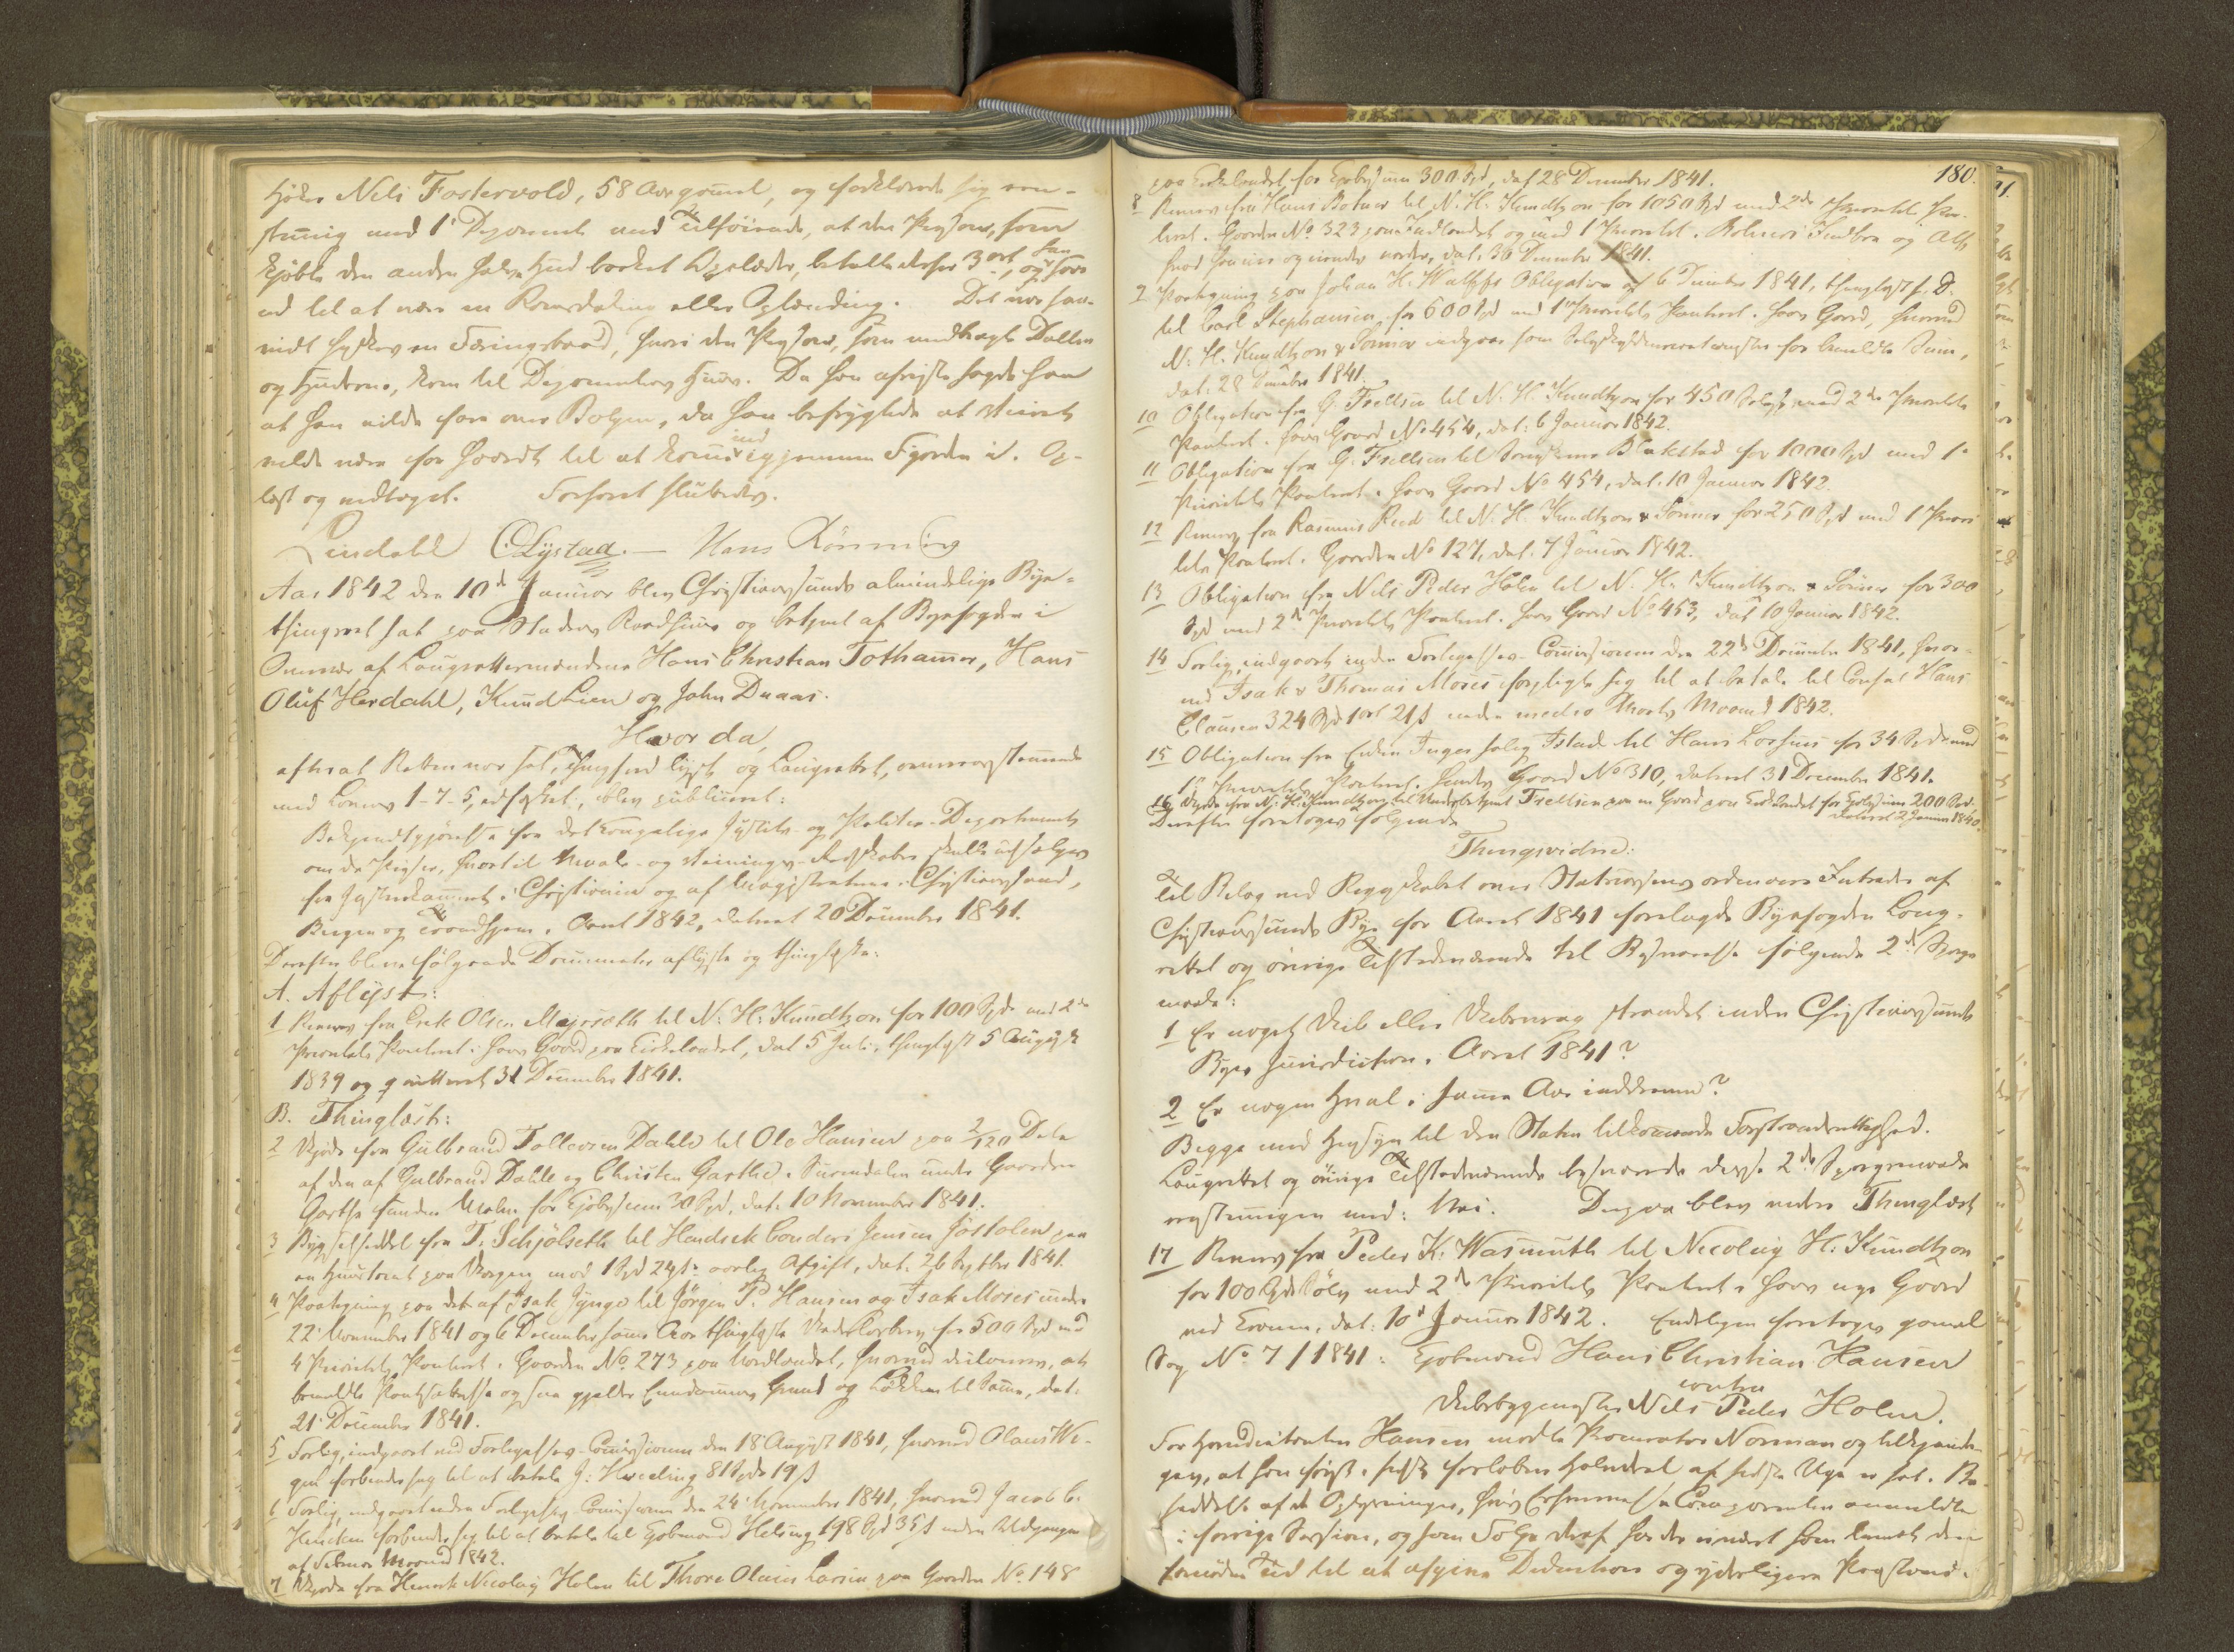 Høker Nels Fostervold, 58 Aar gammel, og forklarede sig overens-
stemmig med 1' Deponent med Tilføiende, at den Person, som
kjøbte den anden halve Hud barket Overlæder, betalte derfor 3 ort, og saae
ud til at være en Romsdaling eller Oplænding. Det var
en Færingsbaad, hvori den Person, som medbragte
og Huderne, kom til Deponentens Huus. Da han afreiste sagde han
at han vilde fare over Bolgen, da han befrygtede at
vilde være for haardt til at komme ind igjennem Fjorden
læst og vedtaget. Forhøret sluttedes.
Lindahl C Lystad. — Hans Rønning
Aar 1842 den 10de Januar blev Christiansunds almindelige Bye-
thingsret sat paa Stadens Raadhuus og betjent af Byefogden i
Overvær af Laugrettesmændene Hans Christian Tothammer, Hans
Oluf Herdahl, Knud Lien og John Dunaas.
Hvor da,
efterat Retten var sat, Thingfred lyst og Laugrettet, overensstemmende
med Lovens 1-7-5, edfæstet, blev publiceret:
Bekjendtgjørelse fra det kongelige Justits- og Politie-Departement
om de Priser, hvortil Maale- og Veinings-Redskaber skulle udsælges
fra Justerkammeret i Christiania og af Magistraterne i Christianssand,
Bergen og Trondhjem i Aaret 1842, dateret 20 December 1841.
Derefter bleve følgende Documenter aflyste og thinglæste:
A. Aflyst:
1 fra Erik Olsen Majoseth til N. H. Knudtzon for 100 Spd. med 2den
Prioritets Panteret i hans Gaard paa Kirkelandet, dat 5 Juli, thinglyst 5 August
1839 og qvitteret 31 December 1841.
B. Thinglæst:
2 Skjøde fra Gulbrand Tollevsen Dahle til Ole Hansen paa 2/120 Dele
af den af Gulbrand Dahle og Christen Garthe i Surendalen under Gaarden
Garthe fundne Malm for Kjøbesum 30 Spd, dat. 10 November 1841.
3 Bygselseddel fra T. Schjølseth til Hendrik Conders Jensen Jøstolen paa
en Huustomt paa Vaagen mod 1 Spd 24 s aarlig Afgift, dat. 26 Septbr 1841.
4 Paategning paa det af Isak Jynge til Jørgen P. Hansen og Isak Moses under
22 November 1841 og 6 December samme Aar thinglæste Skadesløsbrev for 500 Spd med
4 Prioritets Panteret i Gaarden No. 273 paa Nordlandet, hvorved declareres, at
bemeldte Panthæftelse ogsaa gjælder Eiendommens Grund og Løkken til samme, dat.
21 December 1841.
5 Forlig, indgaaet ved Forligelses-Commissionen den 18 August 1841, hvorved Olaus We-
gen forbinder sig til at betale J. Hweding 81 Spd 19 s
6 Forlig, indgaaet inden Forligelses Commissionen den 24 November 1841, hvorved Jacob C.
Hencken forbinder sig til at betale til Kjøbmand Helsing 198 Spd 35 s inden Udgangen
af Februar Maaned 1842.
7 Skjøde fra Henrik Nicolay Holm til Thore Olaus Larsen paa Gaarden No. 148
180.
paa Kirkelandet for Kjøbesum 300 Spd, dat 28 December 1841.
8 fra Hans Botner til N. H. Knudtzon for 1050 Spd med 2den Prioritets Pan-
teret i Gaarden No. 323 paa Indlandet og med 1 Prioritet i Botners Indboe og Alt,
hvad han eier og eiendes vorder, dat. 30 December 1841.
9 Paategning paa Johan H. Obligation af 6 December 1841, thinglyst s. D.
til Carl Stephansen for 600 Spd med 1ste Prioritets Panteret i hans Gaard, hvorved
N. H. Knudtzon & Sønner som Selvskyldnercautionister for bemeldte Sum,
dat. 28 December 1841.
10 Obligation fra G. Frellsen til N. H. Knudtzon for 450 med 2den Prioritets
Panteret i hans Gaard No 454, dat. 6 Januar 1842.
11 Obligation fra G. Frellsen til Blakstad for 1000 Spd med 1'
Prioritets Panteret i hans Gaard No 454, dat. 10 Januar 1842.
12 fra Rasmus Reed til N. H. Knudtzon & Sønner for 250 Spd med 1 Priori-
tets Panteret i Gaarden No 127, dat. 7 Januar 1842.
13 Obligation fra Nils Peder Holm til N. H. Knudtzon & Sønner for 300
Spd med 2den Prioritets Panteret i hans Gaard No 453, dat 10 Januar 1842.
14 Forlig, indgaaet inden Forligelses-Commissionen den 22de December 1841, hvor-
ved Isak & Thomas Moses forpligte sig til at betale til Consul Hans
Clausen 324 Spd 1 ort 21 s inden medio Marts Maaned 1842.
15 Obligation fra Enken Inger Istad til Hans Lossius for 34 Spd med
1ste Prioritets Panteret i hendes Gaard No 310, dateret 31 December 1841.
16 Skjøde fra N. H. Knudtzon til Frellsen paa en Gaard paa Kirkelandet for Kjøbesum 200 Spd.
dateret 2 Januar 1840.
Derefter foretoges følgende
Thingsvidne:
Til Bilag ved Regnskabet over Statcassens ordinaire Intrader af
Christiansunds Bye for Aaret 1841 forelagde Byefogden Laug-
rettet og øvrige Tilstedeværende til Besvarelse følgende 2de Spørgs-
maale:
1 Er noget Skib eller Skibsvrag strandet inden Christiansunds
Byes Jurisdiction i Aaret 1841?
2 Er nogen Hval i samme Aar inddreven?
Begge med Hensyn til den Staten tilkommende Forstrandsrettighed.
Laugrettet og øvrige Tilstedeværende besvarede disse 2de Spørgsmaale
eenstemmigen med: Nei. Derpaa blev videre Thinglæst
17 fra Peder K: Wasmuth til Nicolay H: Knudtzon
for 100 Spd Sølv med 2den Prioritets Panteret i hans nye Gaard
ved Dat: 10de Januar 1842. Endeligen foretoges gammel
Sag No 7/1841: Kjøbmand Hans Christian Hansen
contra
Skibsbygmester Nils Peder Holm.
For Hovedcitanten Hansen mødte Procurator Norman og tilkjende-
gav, at han først i sidst forløbne Halvdeel af sidste Uge er sat i Be-
siddelse af de Oplysninger, hvis Erhvervelse Comparenten anmeldte
i forrige Session, og som Følge deraf har det været ham levnet den
fornødne Tid til at afgive Deduction og yderligere Paastand.